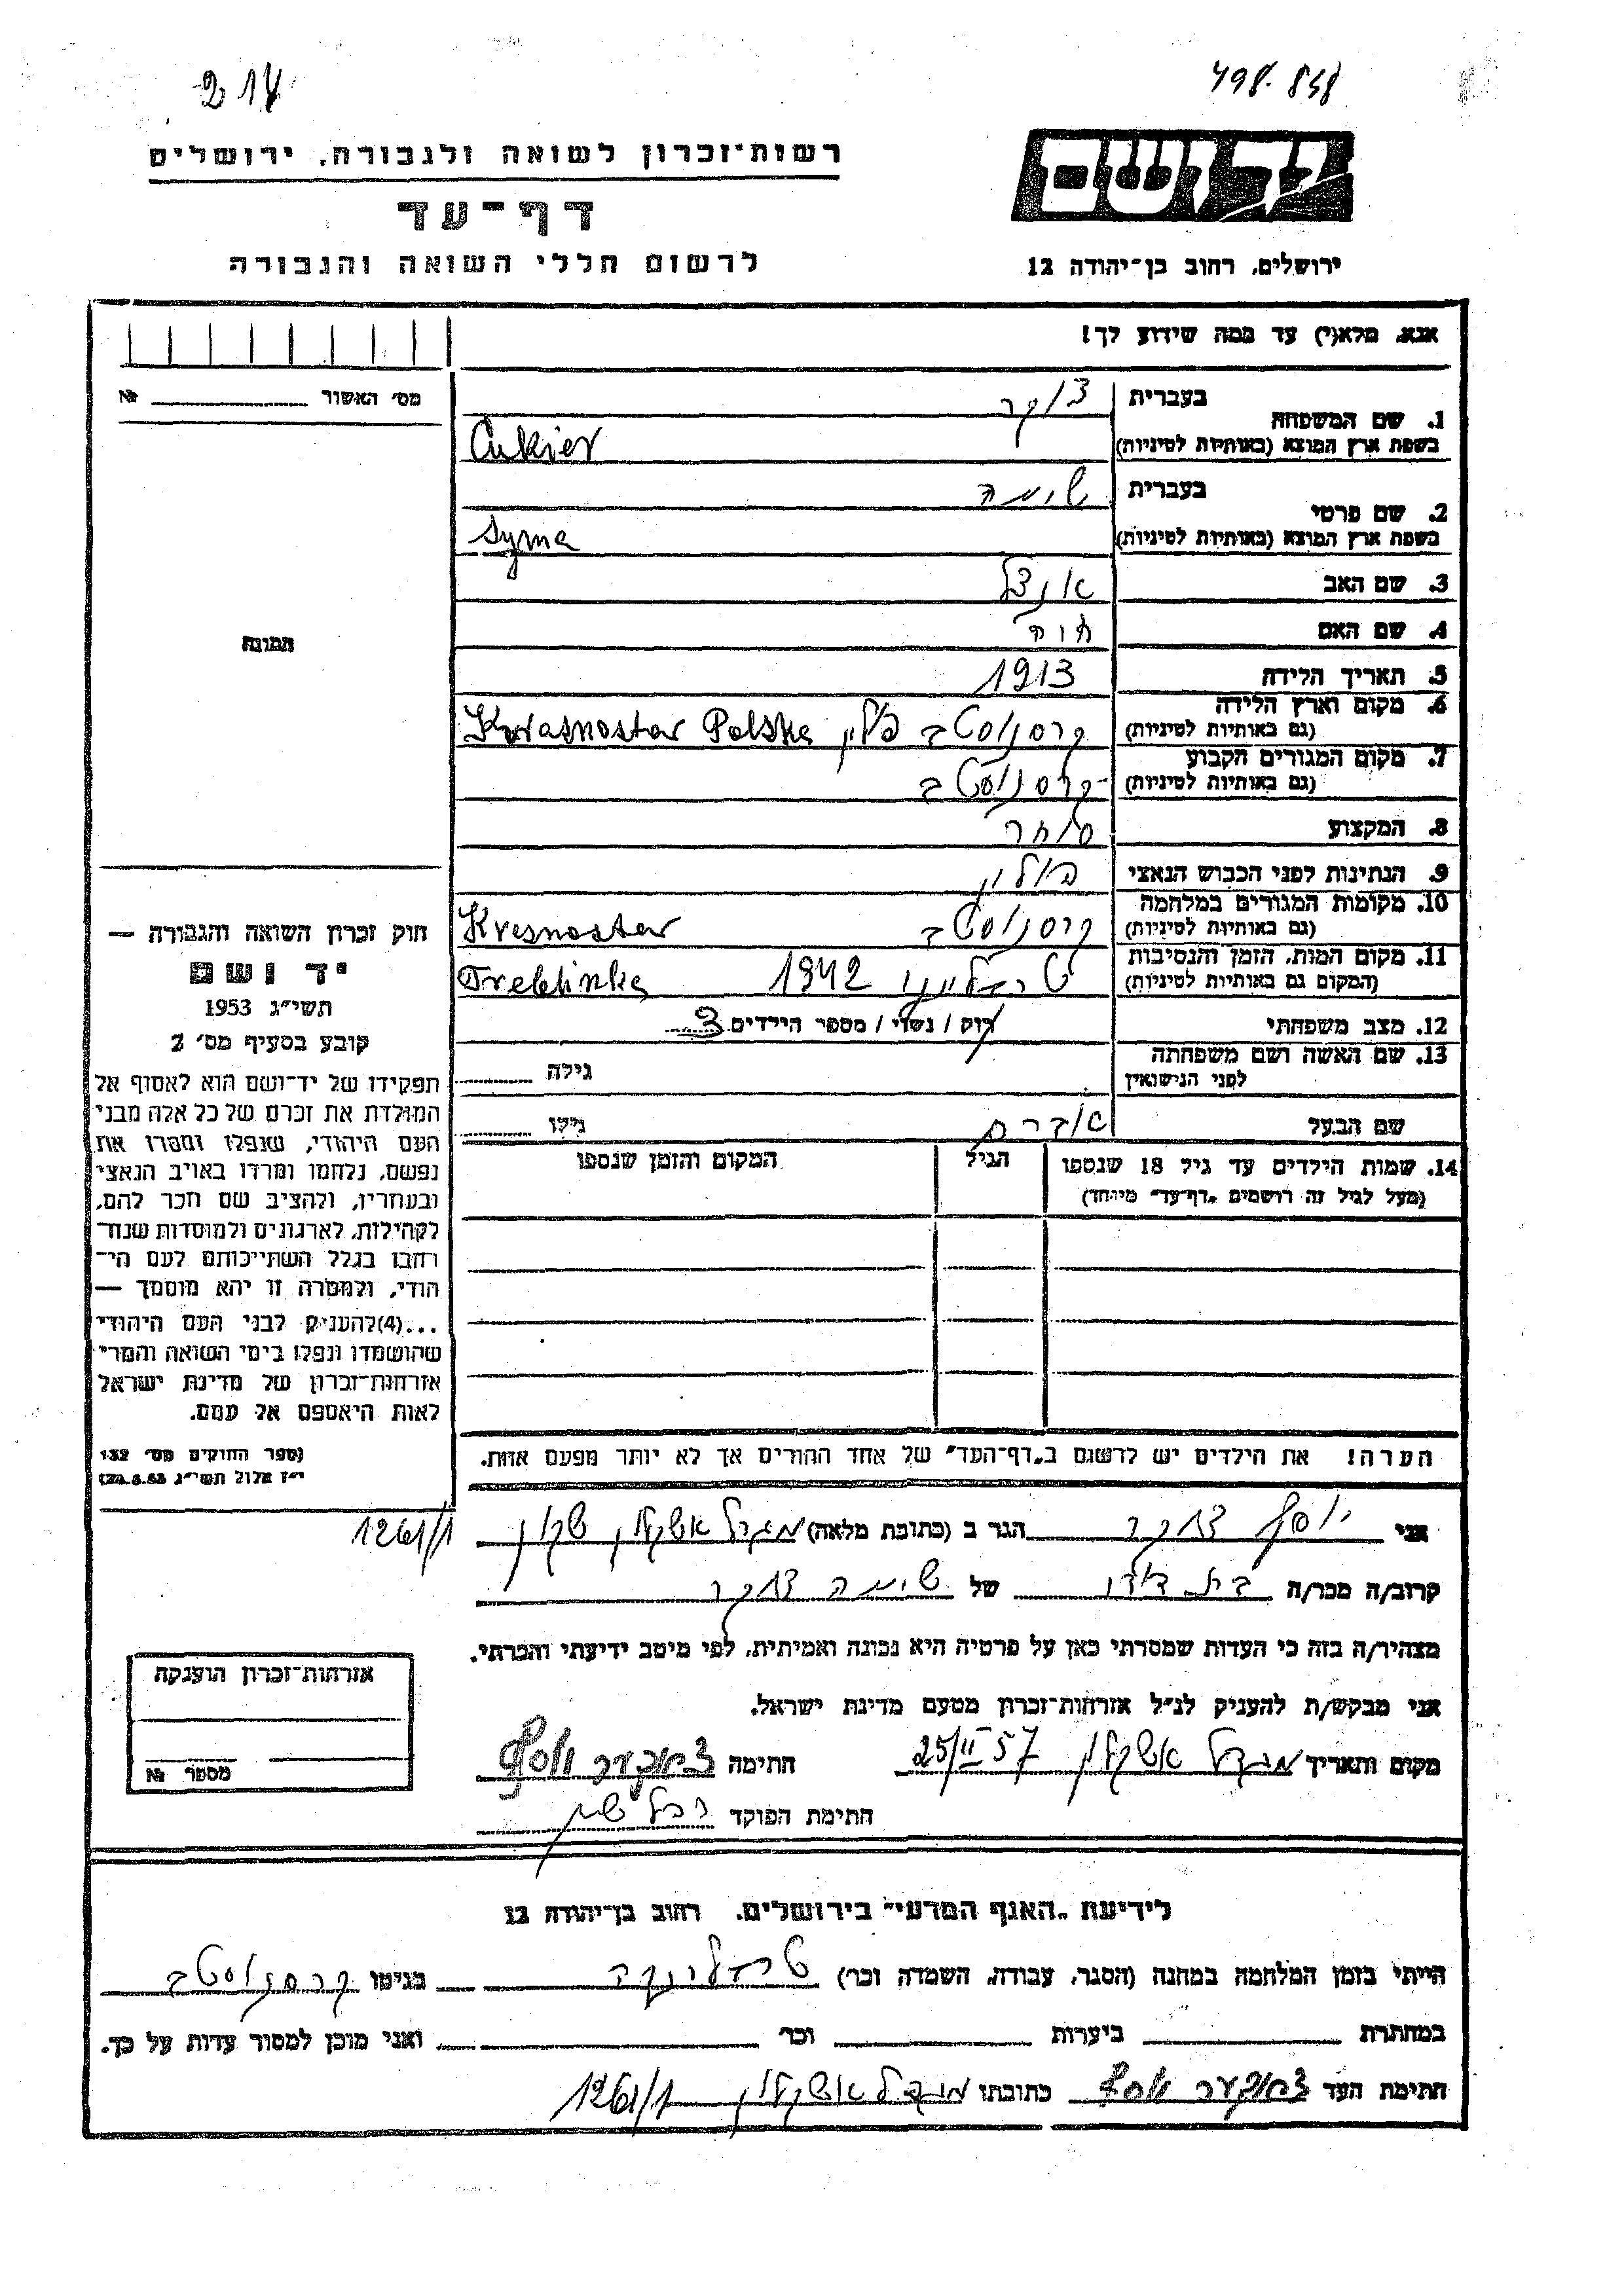 214
498.848
רשות־זכרון לשואה ולגבורה, ירושלים
דף־עד
לרשום חללי השואה והגבורה
יד ושם
ירושלים, רחוב בן־יהודה 12
אנא, מלא(י) עד כמה שידוע לך!
מס׳ האשור №
1. שם המשפחה בעברית צוקר
בשפת ארץ המוצא (באותיות לטיניות) Cukier
2. שם פרטי בעברית שימה
בשפת ארץ המוצא (באותיות לטיניות) Syma
3. שם האב
4. שם האם חוה
5. תאריך הלידה 1913
6. מקום וארץ הלידה (גם באותיות לטיניות) קרסנוסטב פולין Krasnostav Polska
7. מקום המגורים הקבוע (גם באותיות לטיניות) קרסנוסטב
8. המקצוע סוחר
9. הנתינות לפני הכבוש הנאצי פולין
10. מקומות המגורים במלחמה (גם באותיות לטיניות) קרסנוסטב Kresnostav
11. מקום המות, הזמן והנסיבות (המקום גם באותיות לטיניות) 1942 Treblinka
12. מצב משפחתי רוק / נשוי / מספר הילדים 3
13. שם האשה ושם משפחתה לפני הנישואין גילה
שם הבעל אברם גילו
14. שמות הילדים עד גיל 18 שנספו הגיל המקום והזמן שנספו
(מעל לגיל זה רושמים „דף־עד״ מיוחד)
הערה! את הילדים יש לרשום ב„דף־העד״ של אחד ההורים אך לא יותר מפעם אחת.
תמונה
חוק זכרון השואה והגבורה —
יד ושם
תשי״ג 1953
קובע בסעיף מס׳ 2
תפקידו של יד־ושם הוא לאסוף אל
המולדת את זכרם של כל אלה מבני
העם היהודי, שנפלו ומסרו את
נפשם, נלחמו ומרדו באויב הנאצי
ובעוזריו, ולהציב שם וזכר להם,
לקהילות, לארגונים ולמוסדות שנח־
רבו בגלל השתייכותם לעם הי־
הודי, ולמטרה זו יהא מוסמך —
...(4)להעניק לבני העם היהודי
שהושמדו ונפלו בימי השואה והמרי
אזרחות־זכרון של מדינת ישראל
לאות היאספם אל עמם.
(ספר החוקים מס׳ 132
י״ז אלול תשי״ג 28.8.53)
אני יוסף צוקר הגר ב (כתובת מלאה) מגדל אשקלון שכון 1261/1
קרוב/ה מכר/ה בת דודו של שימה צוקר
מצהיר/ה בזה כי העדות שמסרתי כאן על פרטיה היא נכונה ואמיתית, לפי מיטב ידיעתי והכרתי.
אני מבקש/ת להעניק לנ״ל אזרחות־זכרון מטעם מדינת ישראל.
מקום ותאריך מגדל אשקלון 25/II 57 חתימה צוקער יוסף
חתימת הפוקד
אזרחות־זכרון הוענקה
מספר №
לידיעת „האגף המדעי״ בירושלים, רחוב בן־יהודה 12
הייתי בזמן המלחמה במחנה (הסגר, עבודה, השמדה וכו׳) טרבלינקה בגיטו קרסנוסטב
במחתרת ביערות וכו׳ ואני מוכן למסור עדות על כך.
חתימת העד צוקער יוסף כתובתו מגדל אשקלון 1261/1